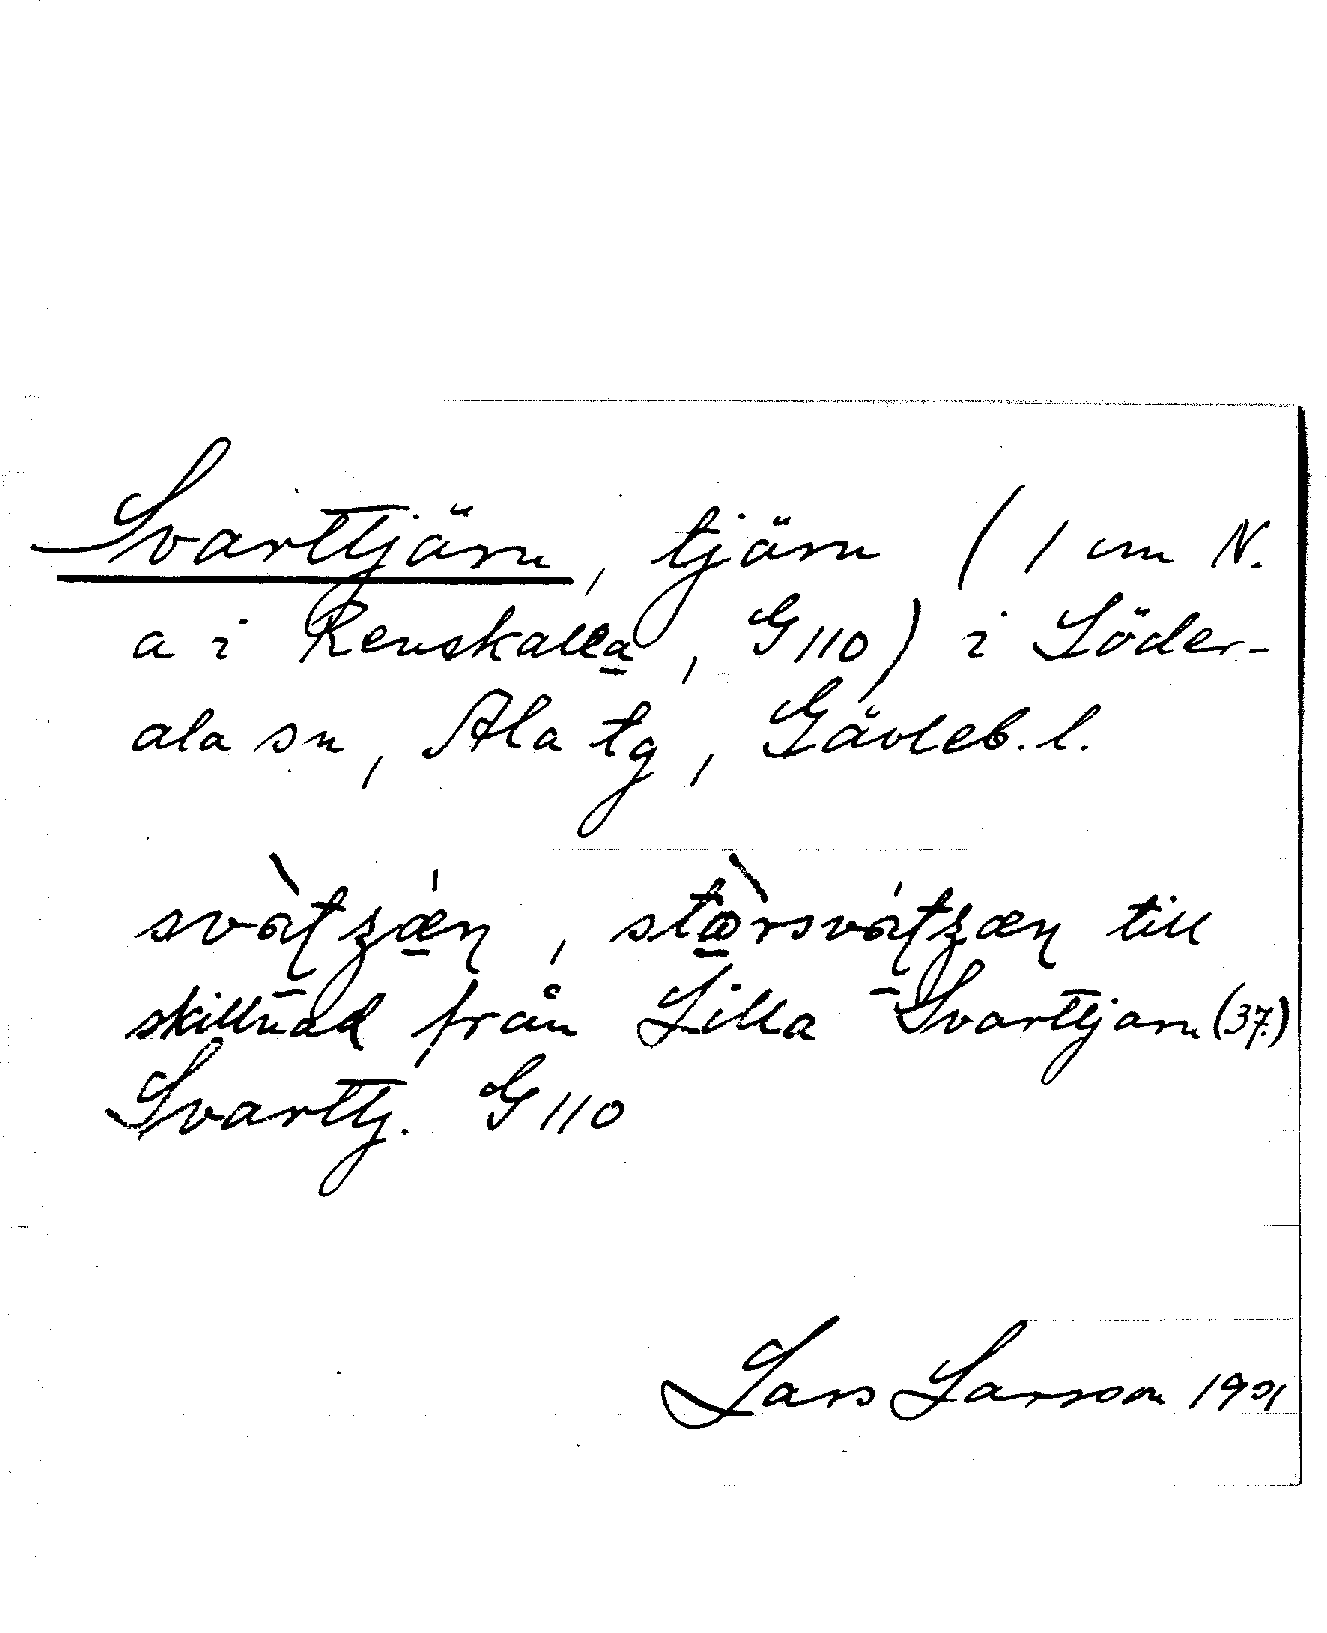 Svarttjärn, tjärn (1 cm N.
a i Renskalla, G110) i Söder-
ala sn, Ala tg, Gävleb. l.
till
skillnad från Lilla Svarttjärn (37.)
Svarttj. G110
Lars Larsson